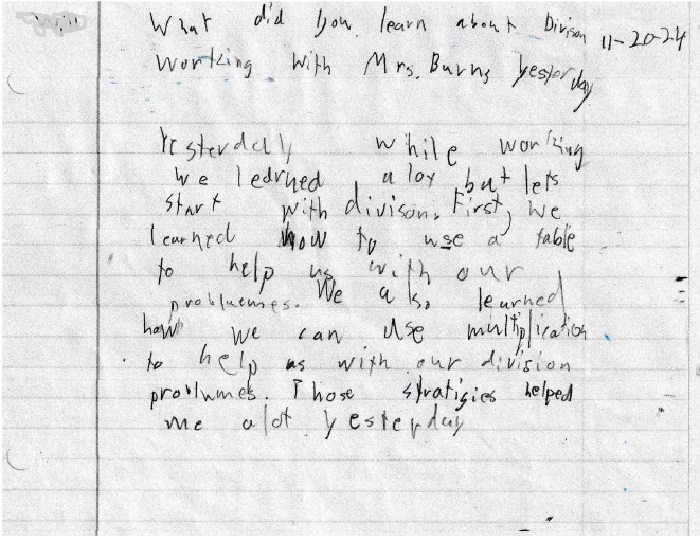 What did you learn about Divison 11-20-24
working with Mrs. Burns yesterday
Yesterday while working
we learned a lot but lets
start with divison. First, we
learned how to use a table
to help us with our
probluemes. We also learned
how we can use multiplication
to help us with our division
problumes. Those stratigies helped
me alot yesterday